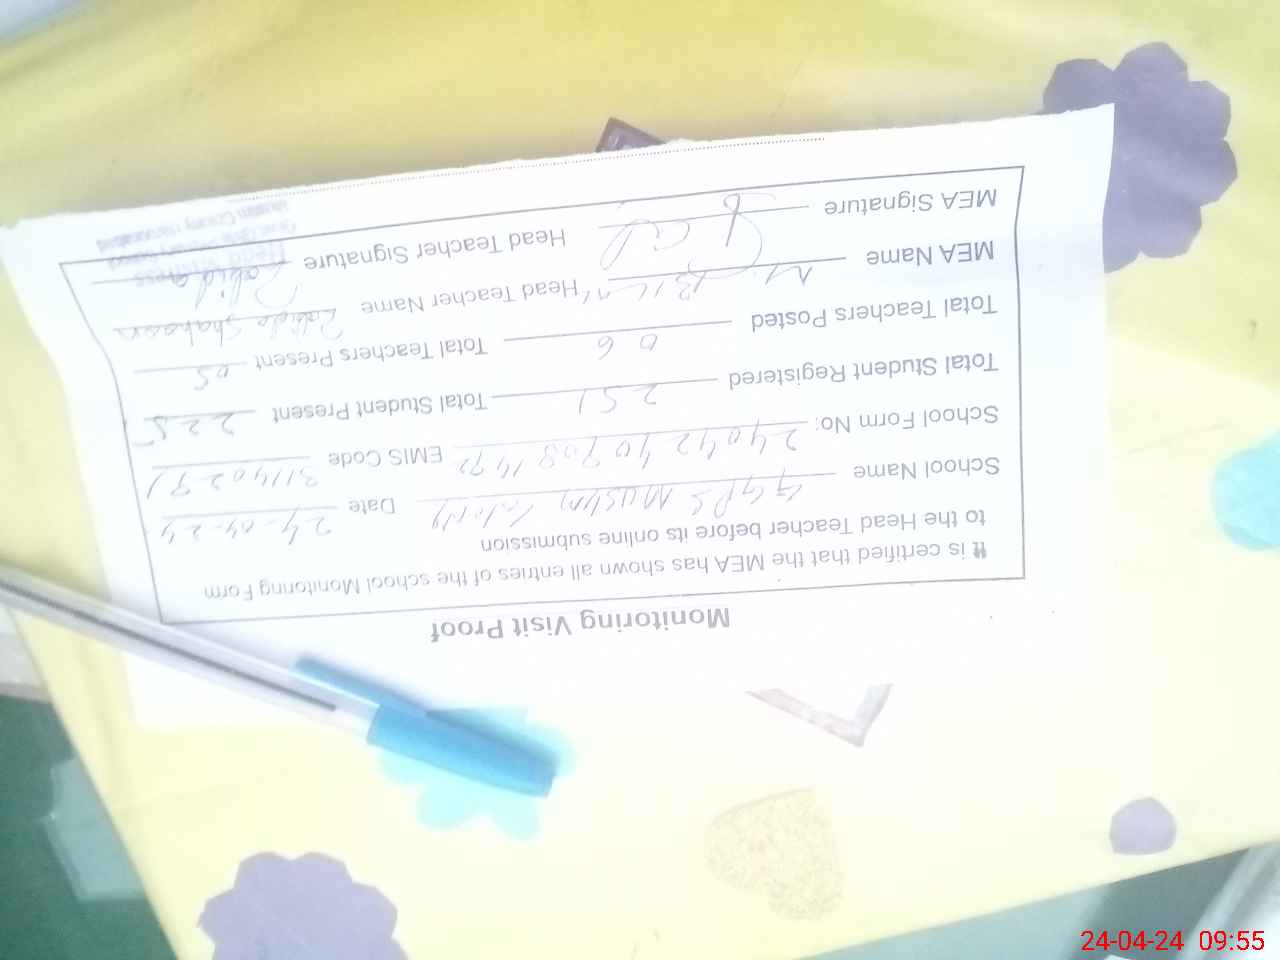 Monitoring Visit Proof
It is certified that the MEA has shown all entries of the school Monitoring Form
to the Head Teacher before its online submission
School Name GGPS Muslim Colony Date 24-04-24
School Form No: EMIS Code
Total Student Registered 251 Total Student Present 225
Total Teachers Posted 06 Total Teachers Present 05
MEA Name M. Head Teacher Name Shaheen
MEA Signature Head Teacher Signature
24-04-24 09:55